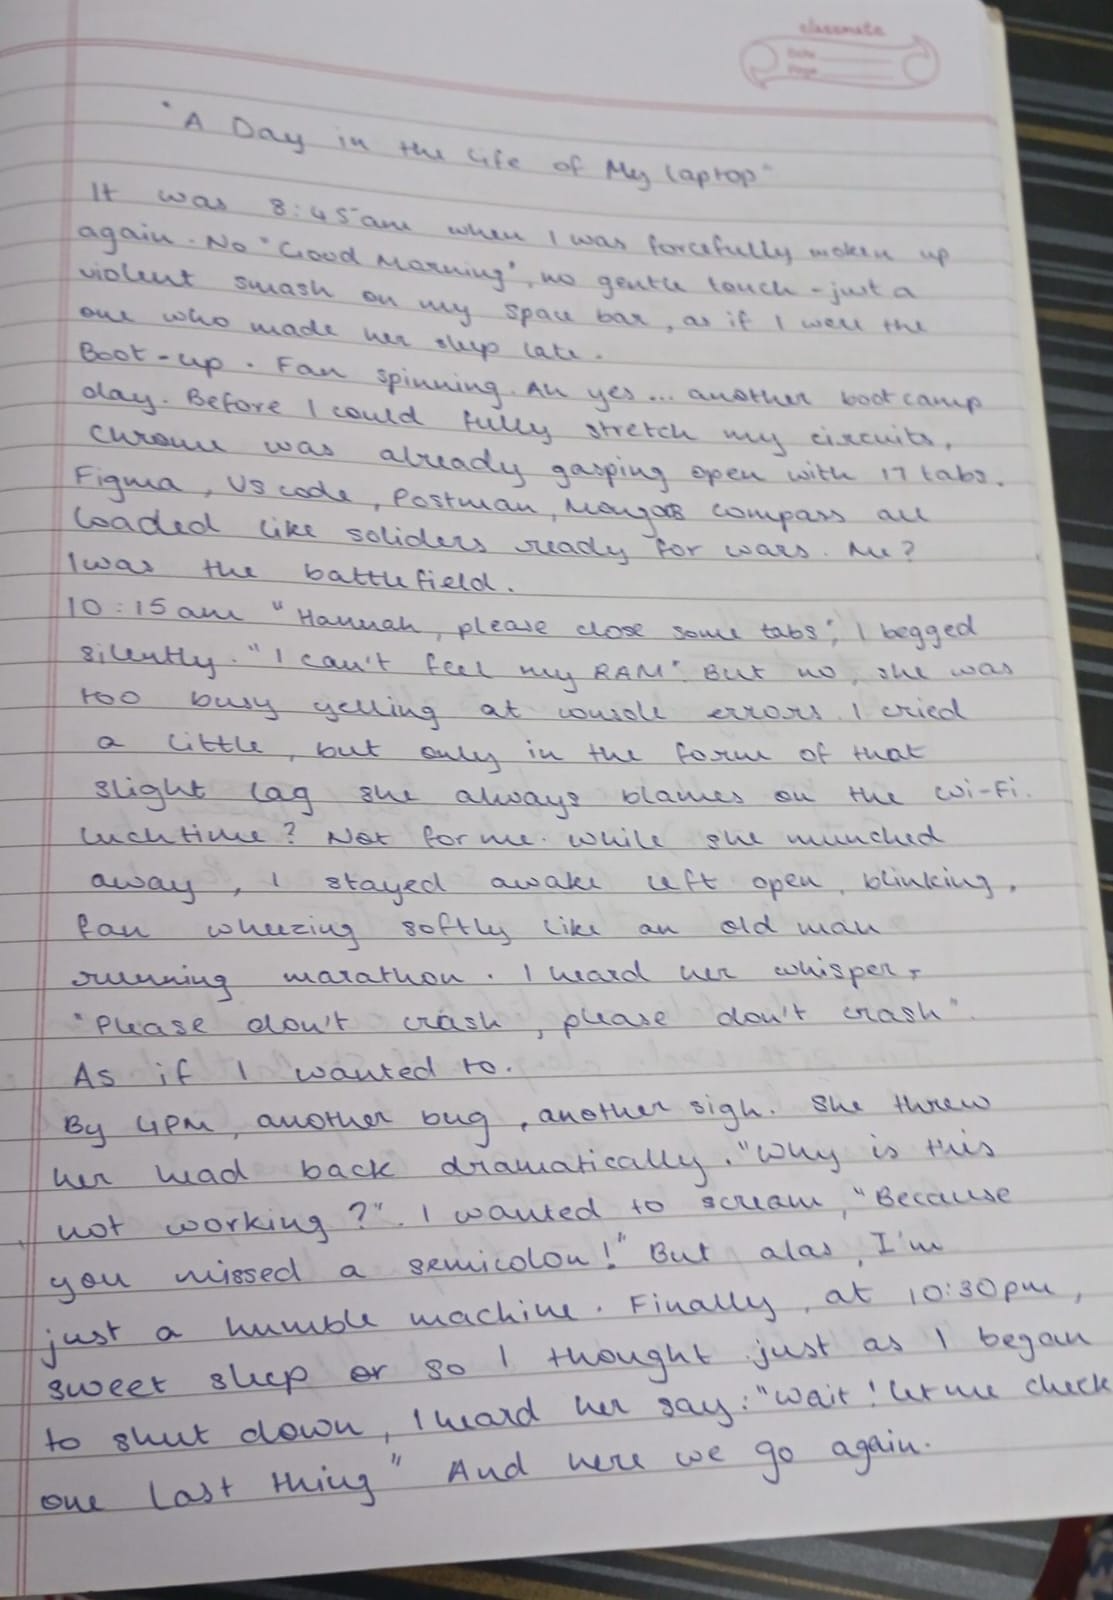 classmate
Date
Page
"A Day in the life of My laptop"
It was 8:45am when I was forcefully woken up
again. No "Good Morning", no gentle touch - just a
violent smash on my space bar, as if I were the
one who made her sleep late.
Boot-up. Fan spinning. Ah yes... another bootcamp
day. Before I could fully stretch my circuits,
Chrome was already gasping open with 17 tabs.
Figma, VS code, Postman, compass all
loaded like soliders ready for wars. Me?
I was the battlefield.
10:15am "Hannah, please close some tabs", I begged
silently. "I can't feel my RAM". But no, she was
too busy yelling at console errors. I cried
a little, but only in the form of that
slight lag she always blames on the Wi-Fi.
Luchtime? Not for me. While she munched
away, I stayed awake left open, blinking,
fan wheezing softly like an old man
running marathon. I heard her whisper,
"Please don't crash, please don't crash".
As if I wanted to.
By 4PM, another bug, another sigh. She threw
her head back dramatically. "Why is this
not working?". I wanted to scream, "Because
you missed a semicolon!" But alas, I'm
just a humble machine. Finally, at 10:30pm,
sweet sleep or so I thought. just as I began
to shut down, I heard her say: "Wait! let me check
one last thing" And here we go again.